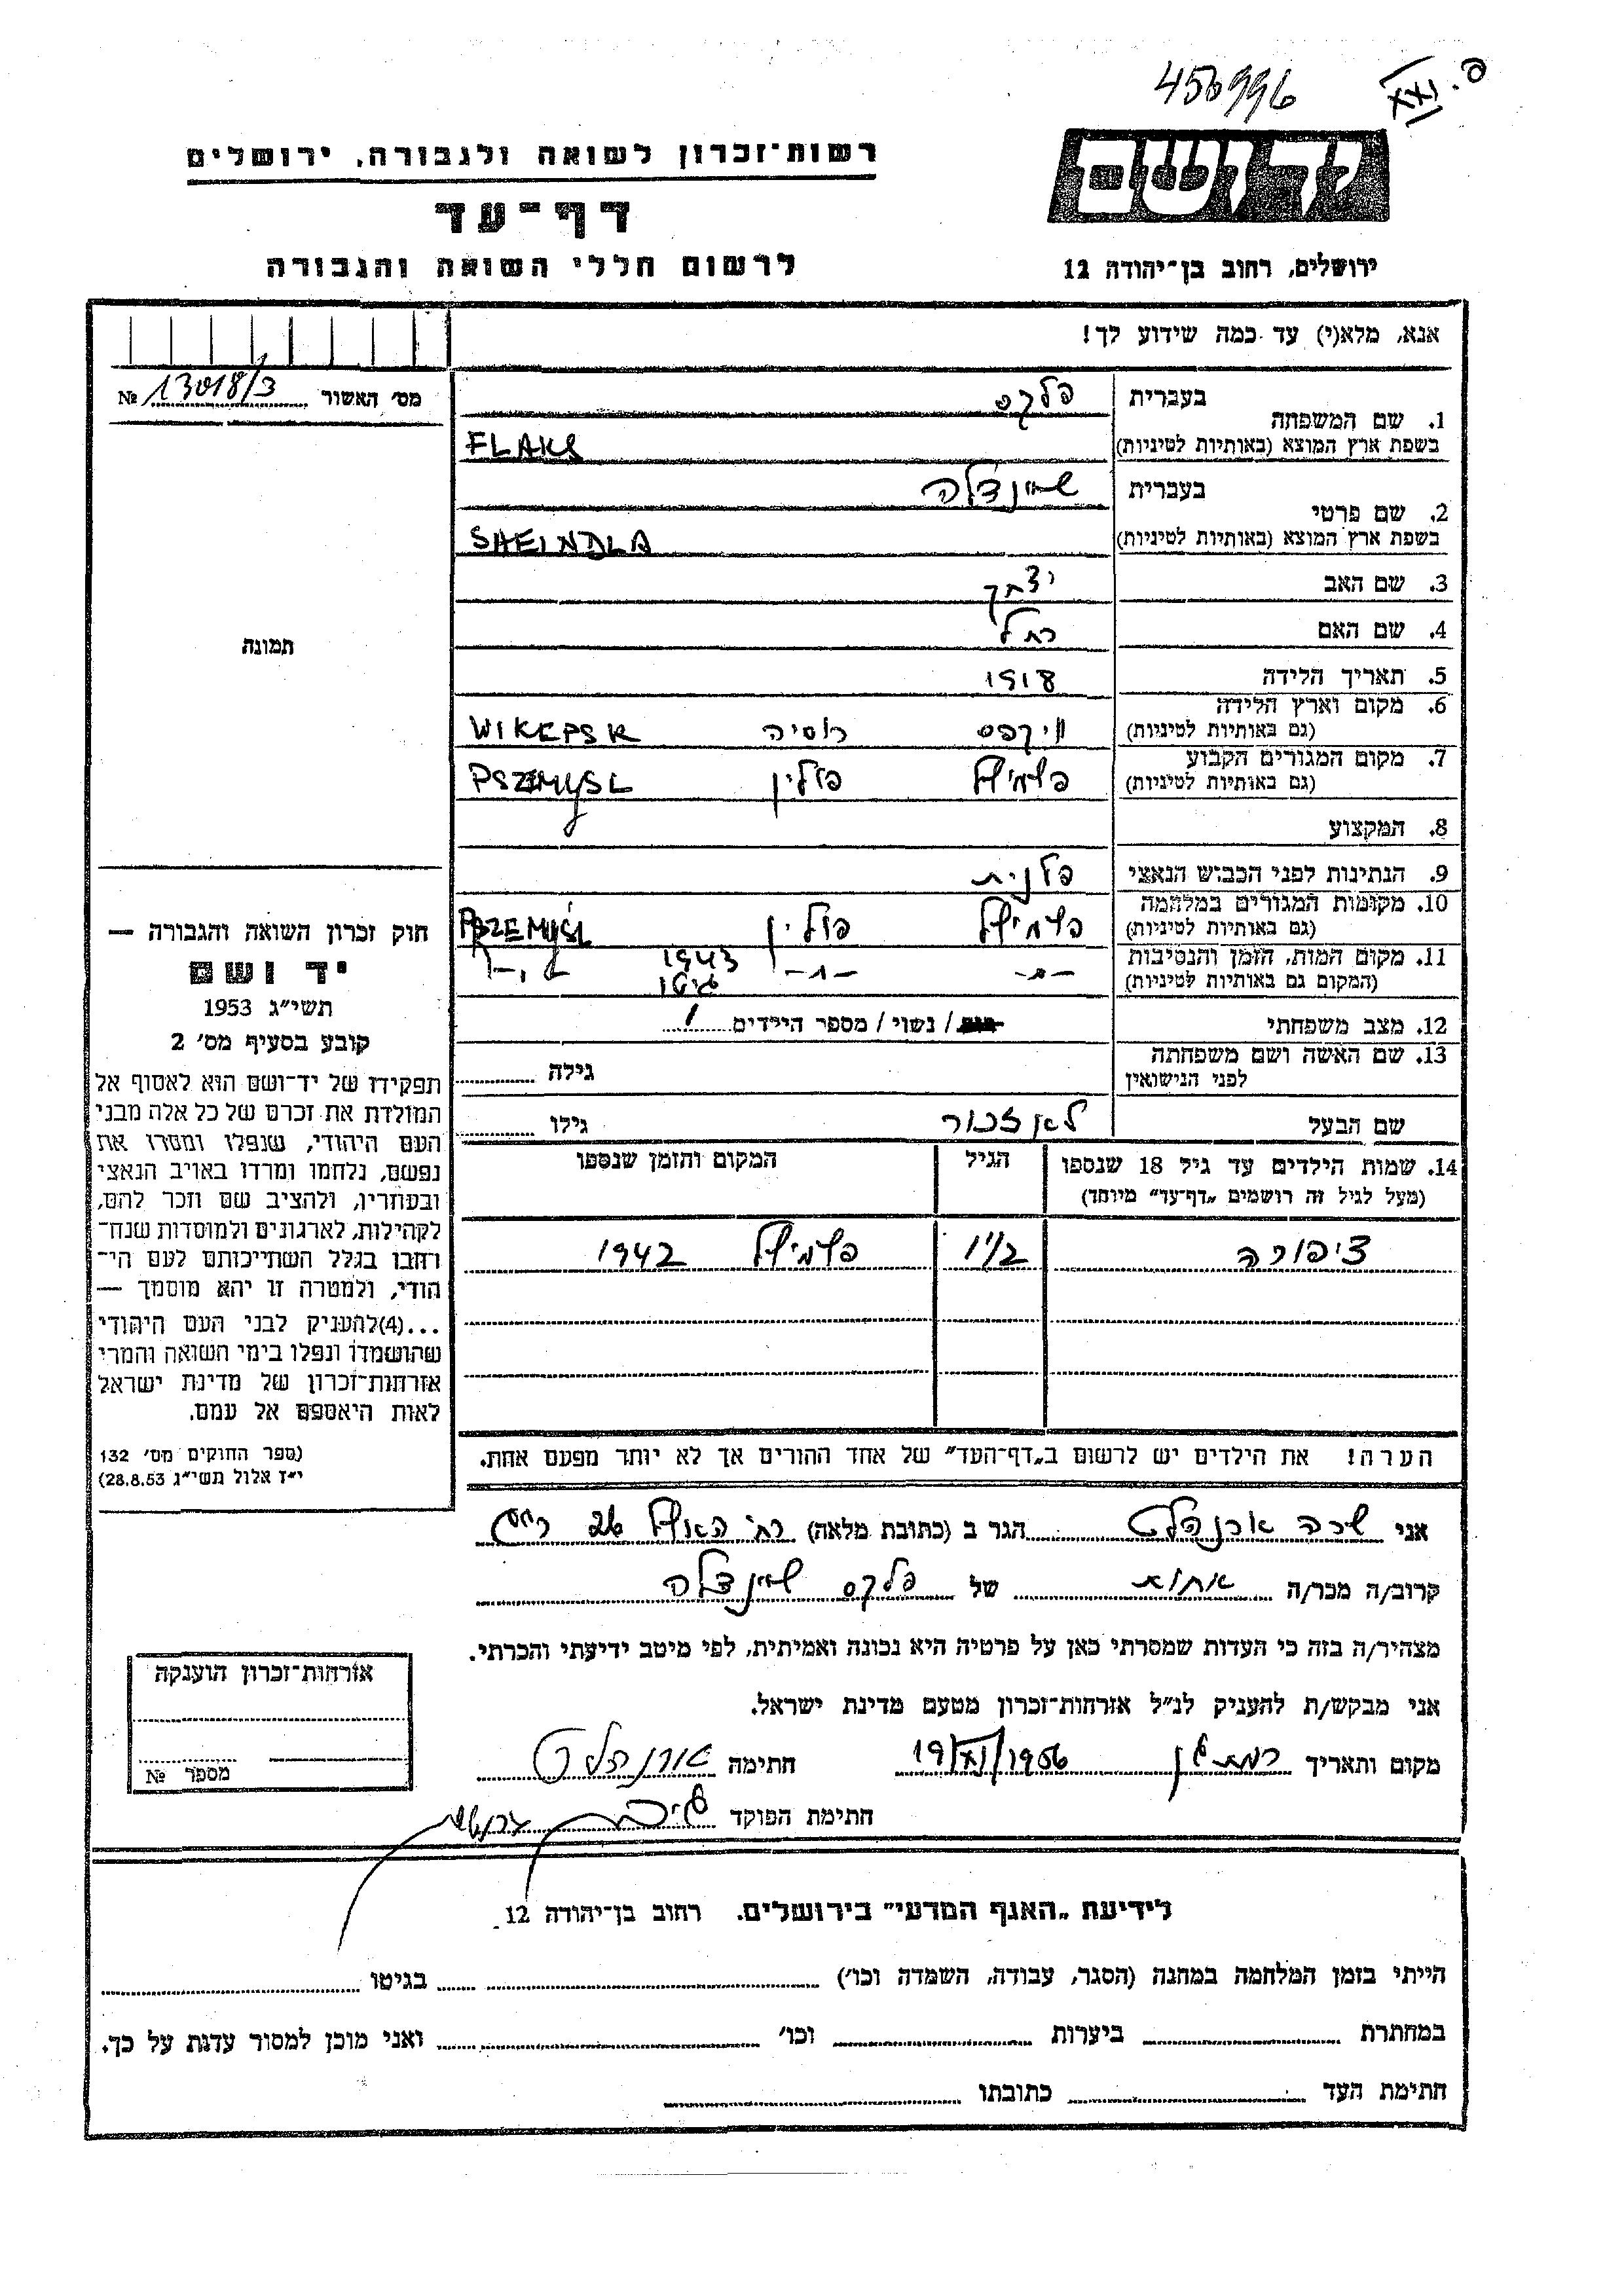 450996
פ. XXI
רשות־זכרון לשואה ולגבורה, ירושלים
יד ושם
דף־עד
לרשום חללי השואה והגבורה
ירושלים, רחוב בן־יהודה 12
אנא, מלא(י) עד כמה שידוע לך!
מס׳ האשור 13018/3 №
1. שם המשפחה
בעברית פלקס
בשפת ארץ המוצא (באותיות לטיניות) FLAKS
2. שם פרטי
בעברית שיינדלה
בשפת ארץ המוצא (באותיות לטיניות) SHEINDLA
3. שם האב יצחק
4. שם האם רחל
5. תאריך הלידה 1918
6. מקום וארץ הלידה
(גם באותיות לטיניות) ויקפס רוסיה WIKEPSK
7. מקום המגורים הקבוע
(גם באותיות לטיניות) פשמישל פולין PSZEMYSL
8. המקצוע
9. הנתינות לפני הכבוש הנאצי פלנית
10. מקומות המגורים במלחמה
(גם באותיות לטיניות) פשמישל פולין PSZEMYŚL
11. מקום המות, הזמן והנסיבות
(המקום גם באותיות לטיניות) -״- -״- 1943 גיטו -״-
12. מצב משפחתי רווק / נשוי / מספר הילדים 1
13. שם האשה ושם משפחתה
לפני הנישואין
גילה
שם הבעל לא זכור גילו
14. שמות הילדים עד גיל 18 שנספו
(מעל לגיל זה רושמים „דף־עד” מיוחד)
הגיל
המקום והזמן שנספו
ציפורה 1 1/2 פשמישל 1942
הערה! את הילדים יש לרשום ב„דף־העד” של אחד ההורים אך לא יותר מפעם אחת.
תמונה
חוק זכרון השואה והגבורה —
יד ושם
תשי״ג 1953
קובע בסעיף מס׳ 2
תפקידו של יד־ושם הוא לאסוף אל
המולדת את זכרם של כל אלה מבני
העם היהודי, שנפלו ומסרו את
נפשם, נלחמו ומרדו באויב הנאצי
ובעוזריו, ולהציב שם וזכר להם,
לקהילות, לארגונים ולמוסדות שנח־
רבו בגלל השתייכותם לעם הי־
הודי, ולמטרה זו יהא מוסמך —
...(4)להעניק לבני העם היהודי
שהושמדו ונפלו בימי השואה והמרי
אזרחות־זכרון של מדינת ישראל
לאות היאספם אל עמם.
(ספר החוקים מס׳ 132
י״ז אלול תשי״ג 28.8.53)
אני שרה אורנהלט הגר ב (כתובת מלאה) רח׳
קרוב/ה מכר/ה אחות של פלקס שיינדלה
מצהיר/ה בזה כי העדות שמסרתי כאן על פרטיה היא נכונה ואמיתית, לפי מיטב ידיעתי והכרתי.
אני מבקש/ת להעניק לנ״ל אזרחות־זכרון מטעם מדינת ישראל.
מקום ותאריך רמת גן 19/XI/1956 חתימה אורנהלט
חתימת הפוקד
אזרחות־זכרון הוענקה
מספר №
לידיעת „האגף המדעי” בירושלים. רחוב בן־יהודה 12.
הייתי בזמן המלחמה במחנה (הסגר, עבודה, השמדה וכו׳) בגיטו
במחתרת ביערות וכו׳ ואני מוכן למסור עדות על כך.
חתימת העד כתובתו